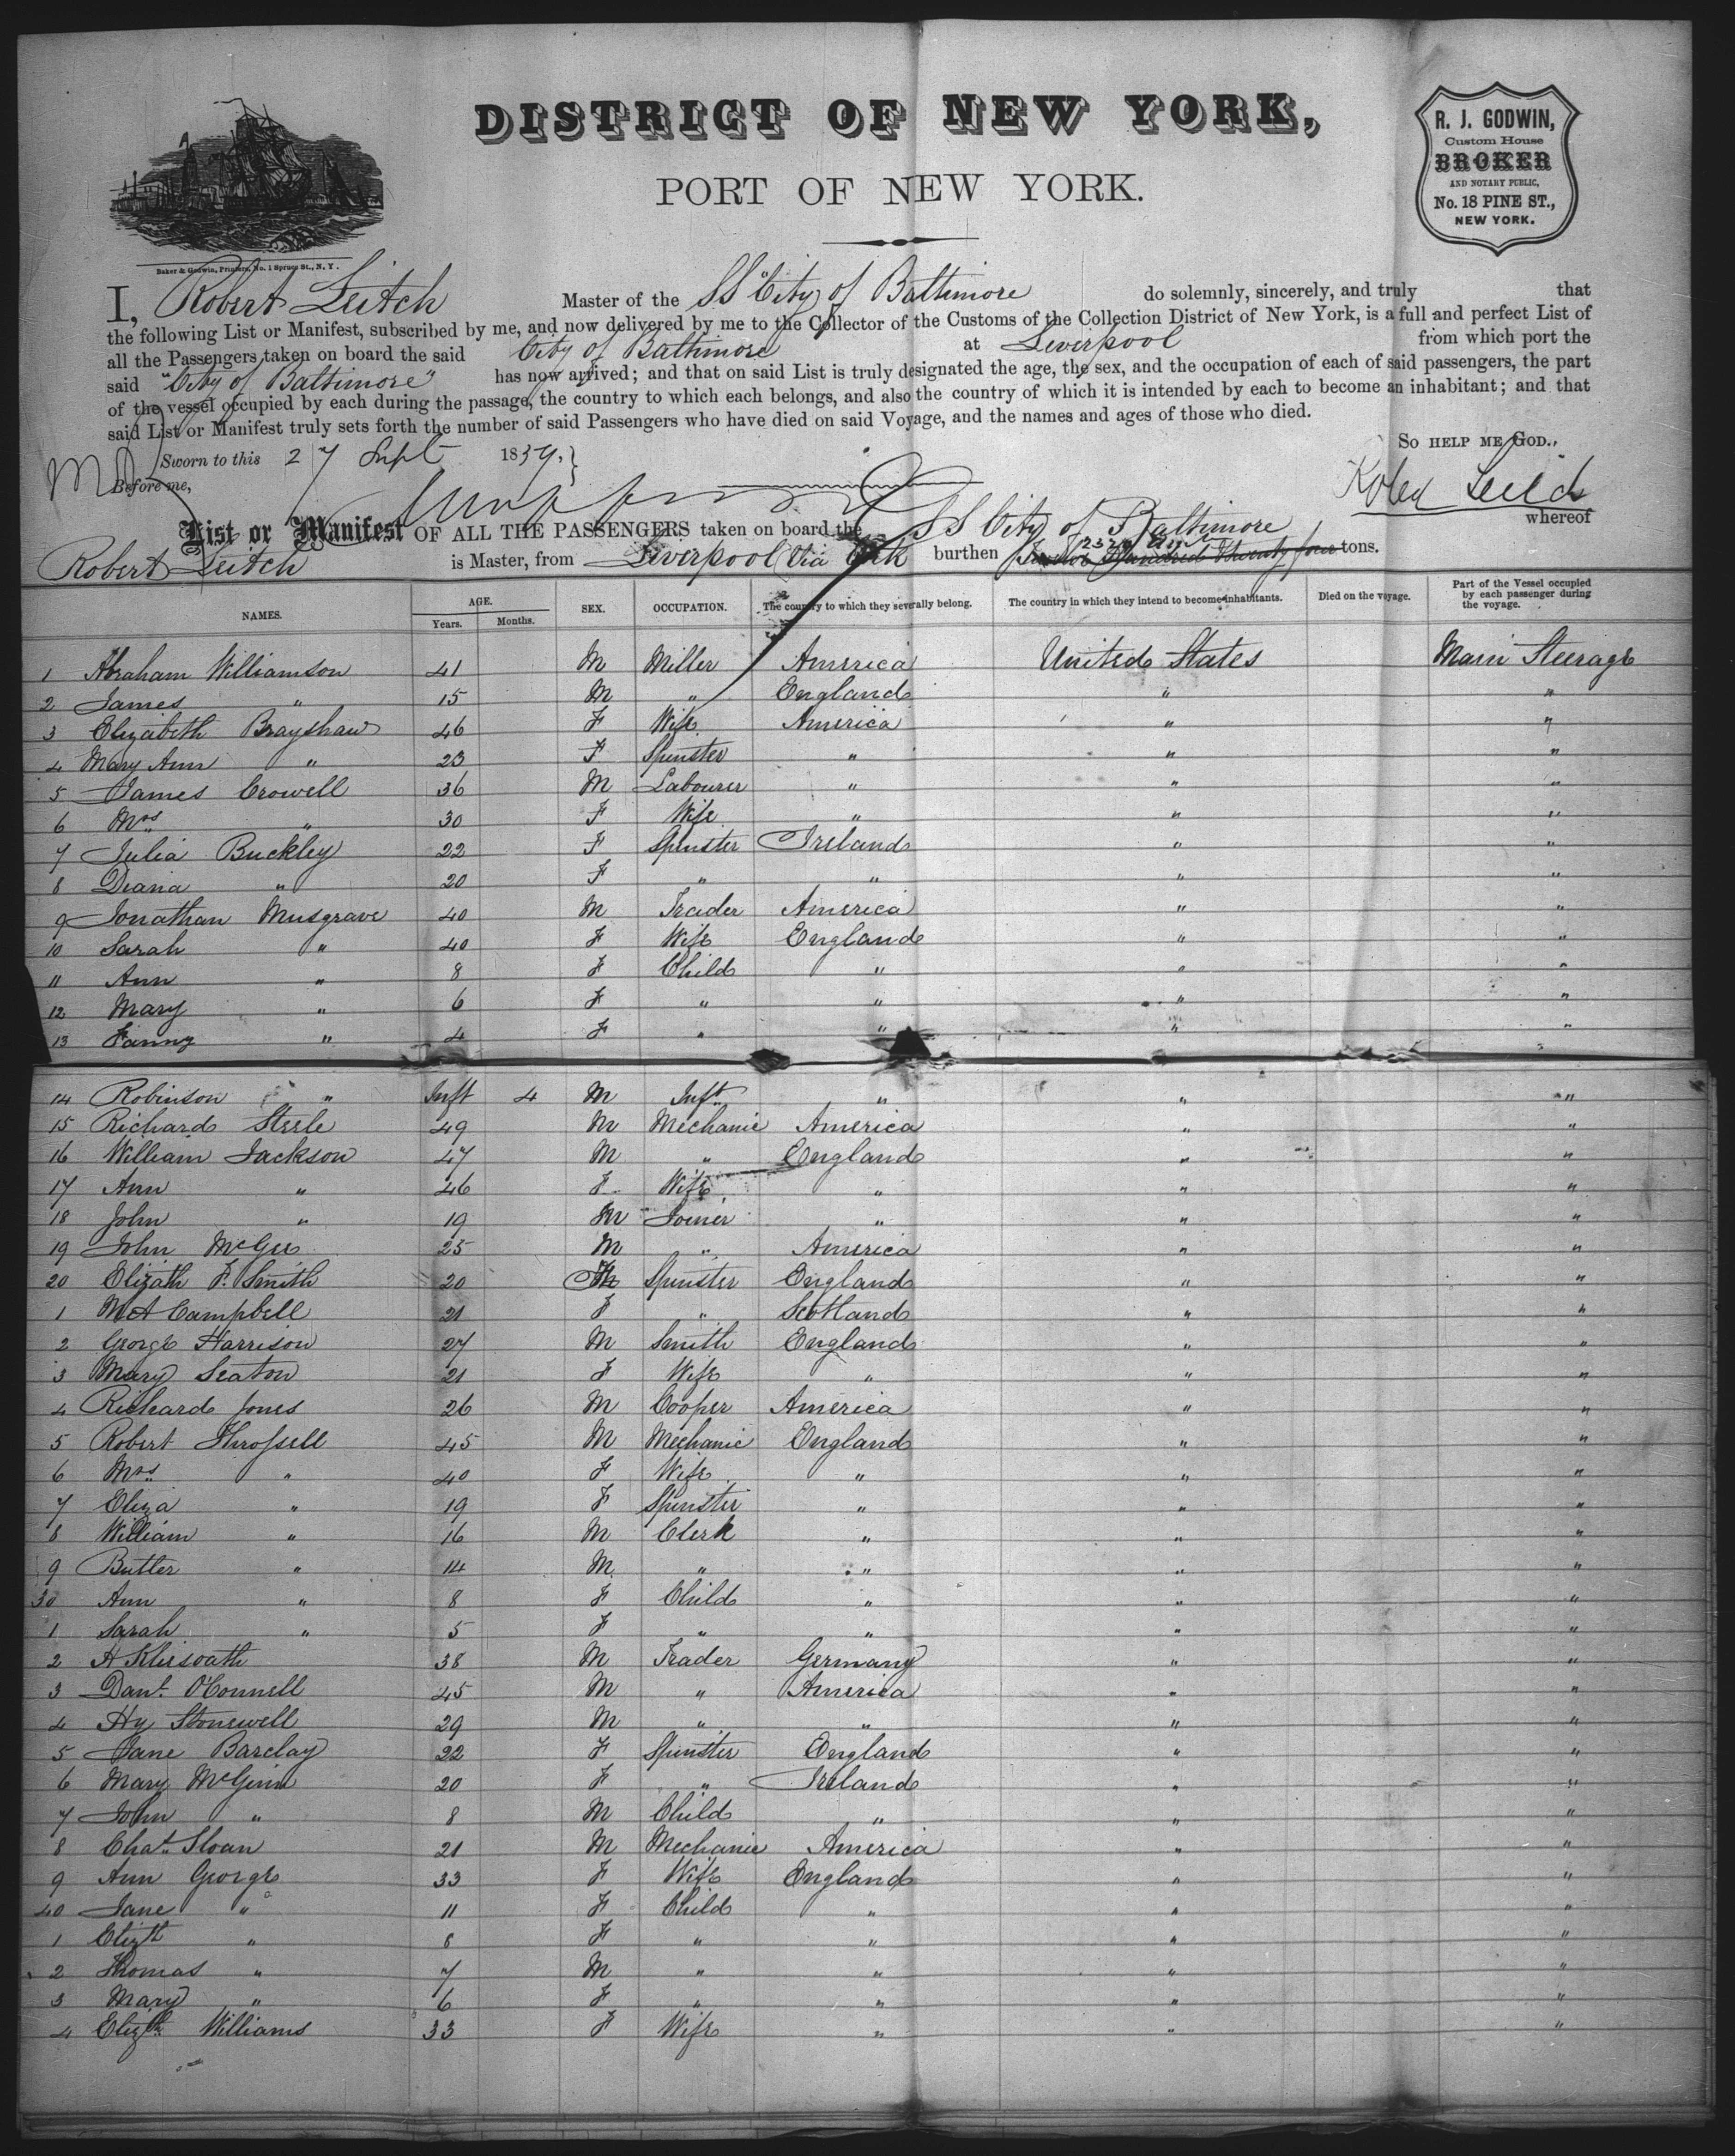 DISTRICT OF NEW YORK,
PORT OF NEW YORK.
R. J. GODWIN,
Custom House
BROKER
AND NOTARY PUBLIC,
No. 18 PINE ST.,
NEW YORK.
Baker & Godwin, Printers, No. 1 Spruce St., N.Y.
I, Robert Leitch Master of the SS "City of Baltimore do solemnly, sincerely, and truly that
the following List or Manifest, subscribed by me, and now delivered by me to the Collector of the Customs of the Collection District of New York, is a full and perfect List of
all the Passengers taken on board the said City of Baltimore at Liverpool from which port the
said "City of Baltimore" has now arrived; and that on said List is truly designated the age, the sex, and the occupation of each of said passengers, the part
of the vessel occupied by each during the passage, the country to which each belongs, and also the country of which it is intended by each to become an inhabitant; and that
said List or Manifest truly sets forth the number of said Passengers who have died on said Voyage, and the names and ages of those who died.
So HELP ME GOD.
Sworn to this 27 Sept 1859,
Before me,
Robert Leitch
List or Manifest OF ALL THE PASSENGERS taken on board the SS City of Baltimore whereof
Robert Leitch is Master, from Liverpool via Cork burthen tons.
NAMES. AGE. Years. Months. SEX. OCCUPATION. The country to which they severally belong. The country in which they intend to become inhabitants. Died on the voyage. Part of the Vessel occupied by each passenger during the voyage.
1 Abraham Williamson 41 M Miller America United States Main Steerage
2 James " 15 M " England " "
3 Elizabeth Brayshaw 46 F Wife America " "
4 Mary Ann " 23 F Spinster " " "
5 James Crowell 36 M Labourer " " "
6 Mrs " 30 F Wife " " "
7 Julia Buckley 22 F Spinster Ireland " "
8 Diana " 20 F " " " "
9 Jonathan Musgrave 40 M Trader America " "
10 Sarah " 40 F Wife England " "
11 Ann " 8 F Child " " "
12 Mary " 6 F " " " "
13 Fanny " 4 F " " " "
14 Robinson " Inft 4 M Inft " " "
15 Richard Steele 49 M Mechanic America " "
16 William Jackson 47 M " England " "
17 Ann " 46 F Wife " " "
18 John " 19 M Joiner " " "
19 John McGee 25 M " America " "
20 Elizath F. Smith 20 F Spinster England " "
1 M A Campbell 21 F " Scotland " "
2 George Harrison 27 M Smith England " "
3 Mary Seaton 21 F Wife " " "
4 Richard Jones 26 M Cooper America " "
5 Robert Throssell 45 M Mechanic England " "
6 Mrs " 40 F Wife " " "
7 Eliza " 19 F Spinster " " "
8 William " 16 M Clerk " " "
9 Butler " 14 M " " " "
30 Ann " 8 F Child " " "
1 Sarah " 5 F " " " "
2 A 38 M Trader Germany " "
3 Danl. O'Connell 45 M " America " "
4 Hy Stonewell 29 M " " " "
5 Jane Barclay 22 F Spinster England " "
6 Mary McGinn 20 F " Ireland " "
7 John " 8 M Child " " "
8 Chas. Sloan 21 M Mechanic America " "
9 Ann George 33 F Wife England " "
40 Jane " 11 F Child " " "
1 Elizth " 8 F " " " "
2 Thomas " 7 M " " " "
3 Mary " 6 F " " " "
4 Elizth Williams 33 F Wife " " "